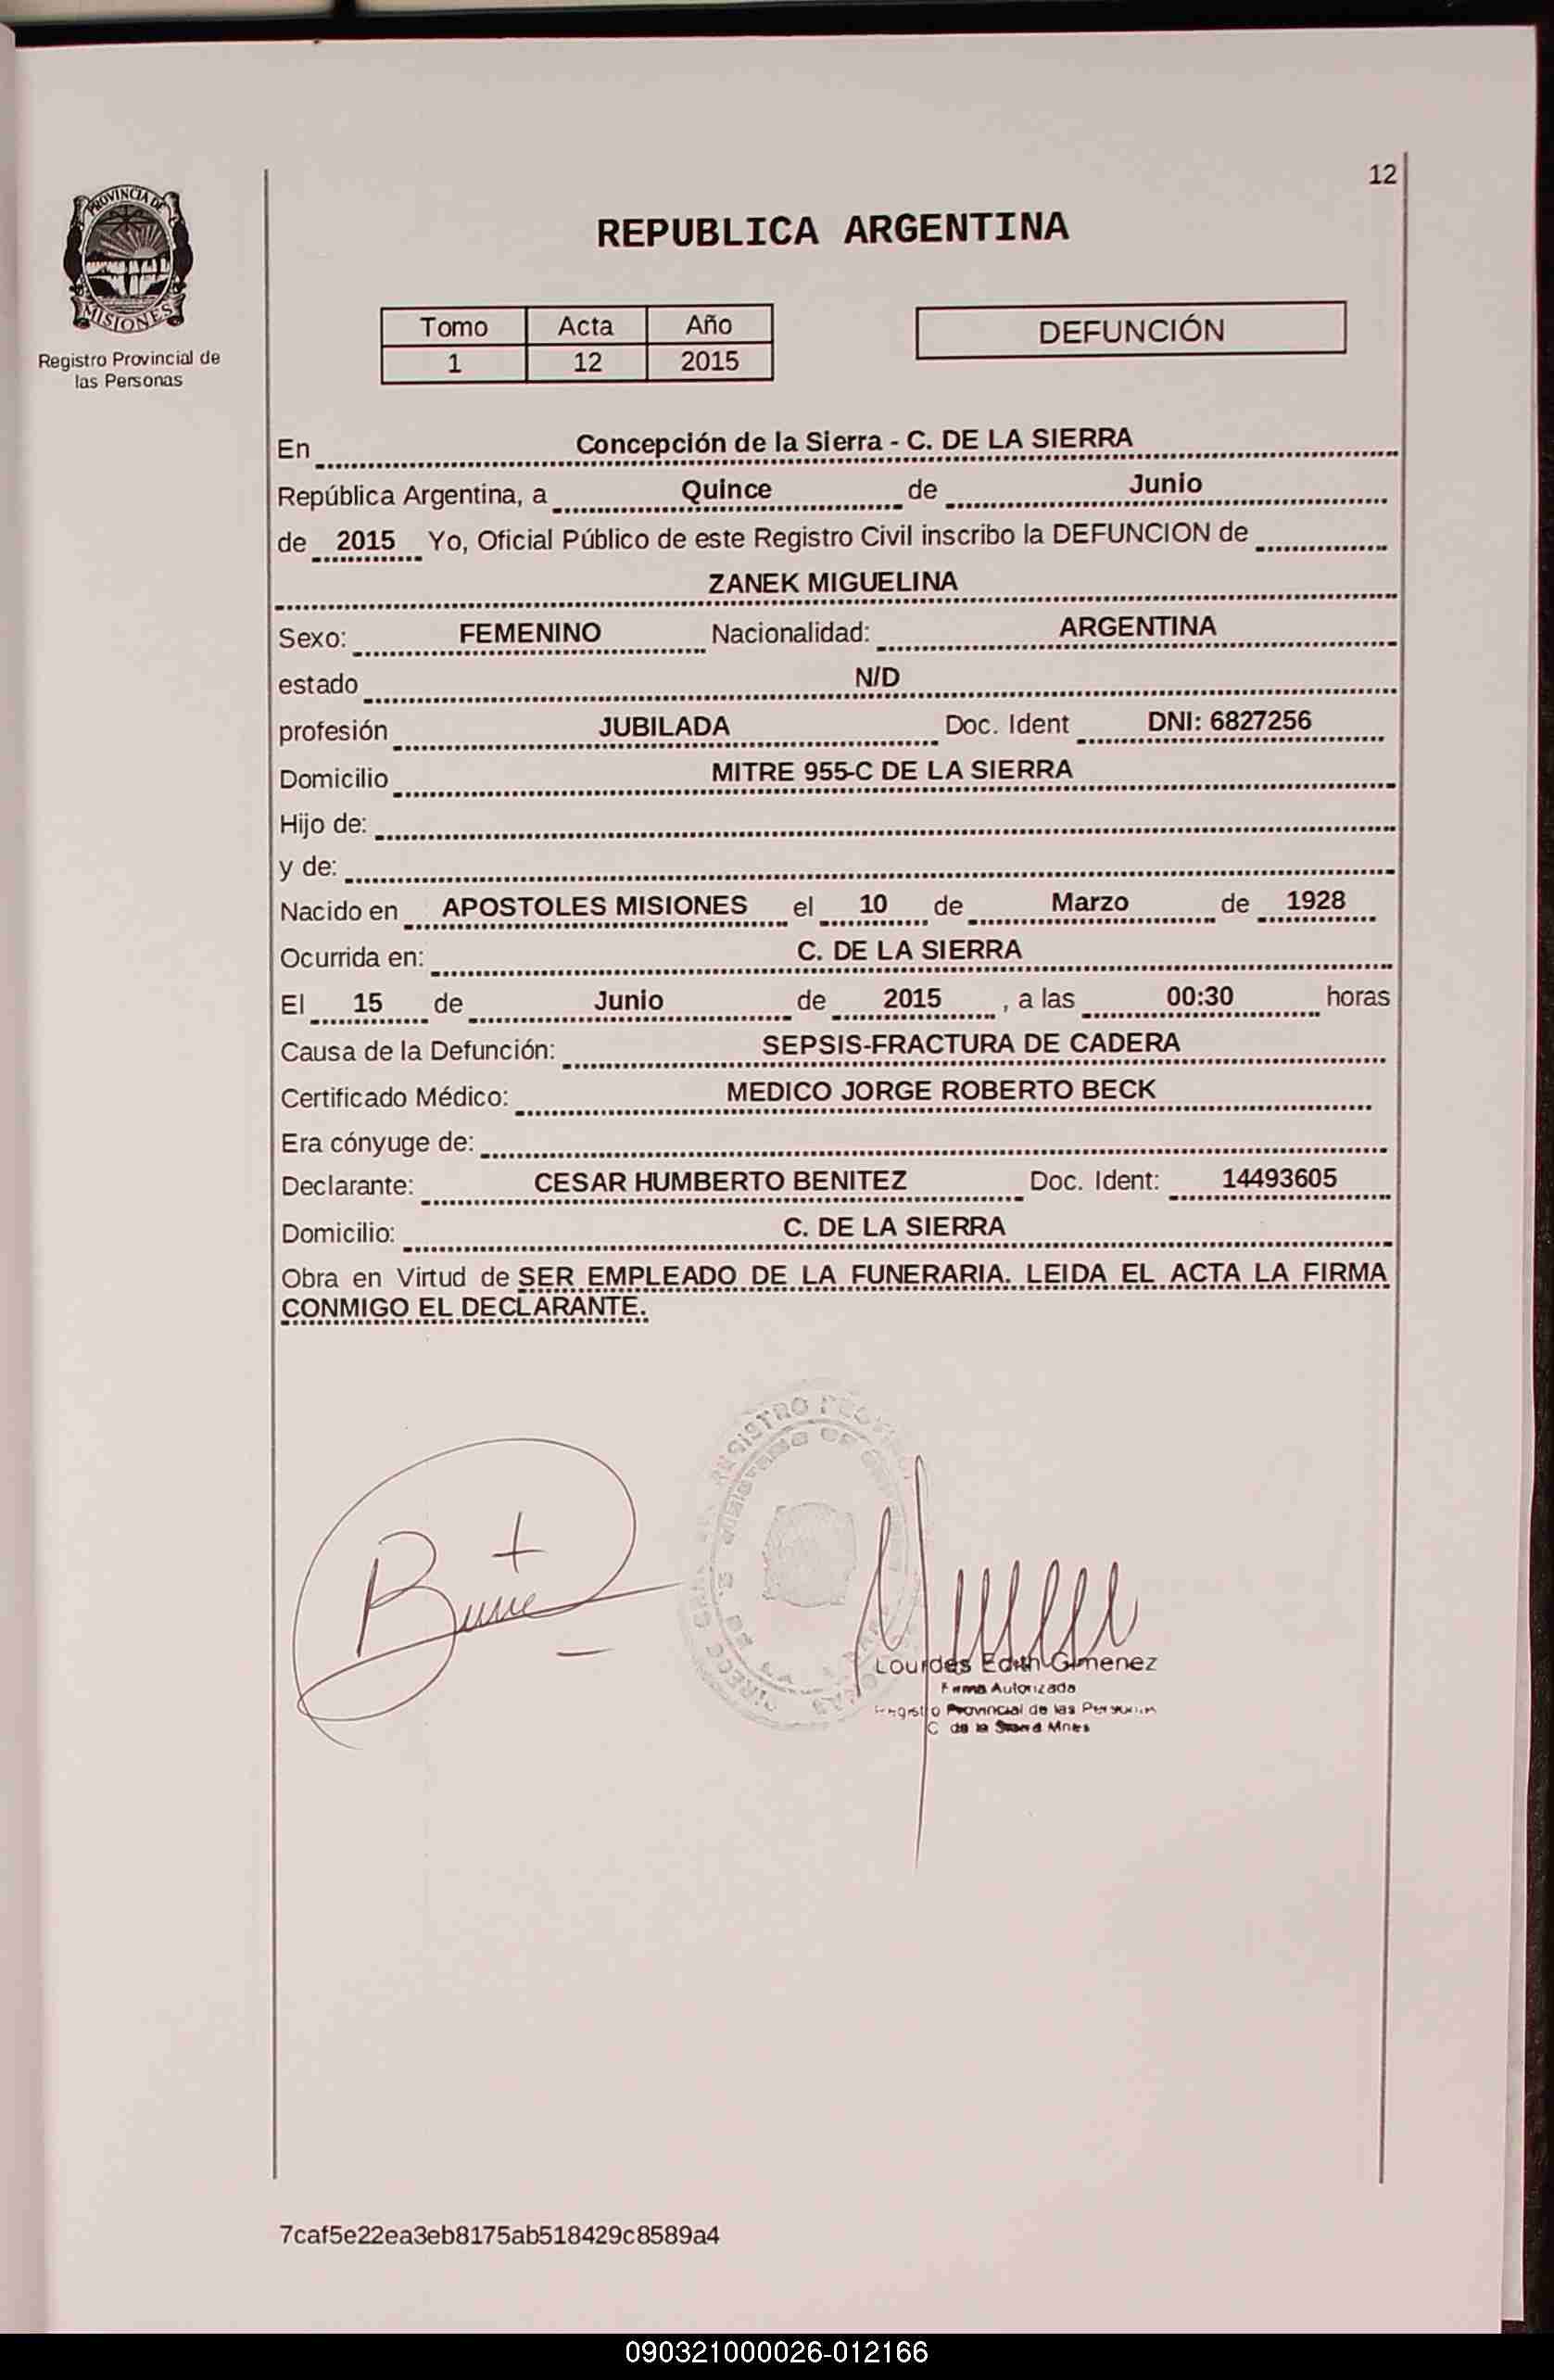 12
PROVINCIA DE
MISIONES
Registro Provincial de
las Personas
REPUBLICA ARGENTINA
Tomo Acta Año
1 12 2015
DEFUNCIÓN
En Concepción de la Sierra - C. DE LA SIERRA
República Argentina, a Quince de Junio
de 2015 Yo, Oficial Público de este Registro Civil inscribo la DEFUNCION de
ZANEK MIGUELINA
Sexo: FEMENINO Nacionalidad: ARGENTINA
estado N/D
profesión JUBILADA Doc. Ident DNI: 6827256
Domicilio MITRE 955-C DE LA SIERRA
Hijo de:
y de:
Nacido en APOSTOLES MISIONES el 10 de Marzo de 1928
Ocurrida en: C. DE LA SIERRA
El 15 de Junio de 2015 , a las 00:30 horas
Causa de la Defunción: SEPSIS-FRACTURA DE CADERA
Certificado Médico: MEDICO JORGE ROBERTO BECK
Era cónyuge de:
Declarante: CESAR HUMBERTO BENITEZ Doc. Ident: 14493605
Domicilio: C. DE LA SIERRA
Obra en Virtud de SER EMPLEADO DE LA FUNERARIA. LEIDA EL ACTA LA FIRMA
CONMIGO EL DECLARANTE.
REGISTRO
Lourdes Edith Gimenez
Firma Autorizada
Registro Provincial de las Personas
C de la Sierra Mnes
7caf5e22ea3eb8175ab518429c8589a4
090321000026-012166